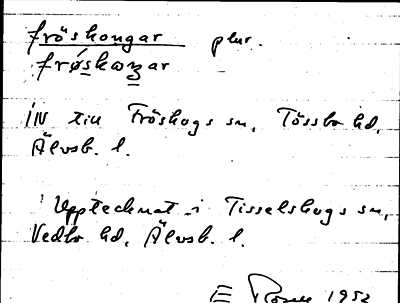 fröskongar plur.
frøskoŋar
inv till Fröskogs sn, Tössbo hd,
Älvsb. l.
Upptecknat i Tisselskogs sn,
Vedbo hd, Älvsb. l.
E 1952